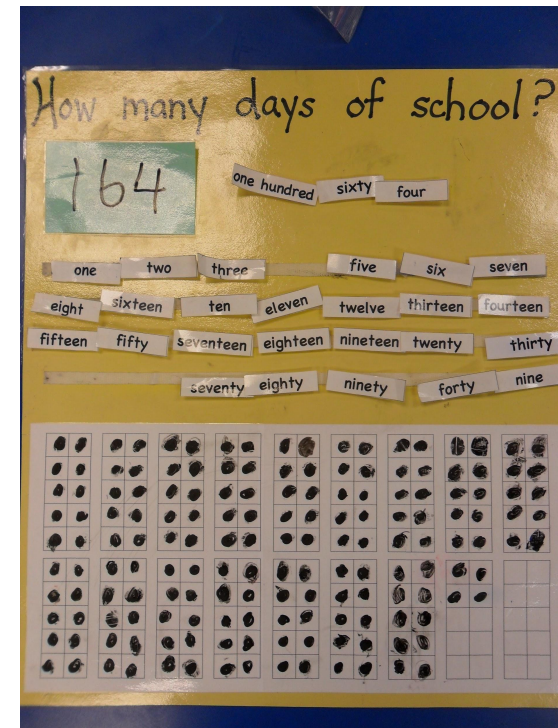 How many days of school?
164
one hundred sixty four
one two three five six seven
eight sixteen ten eleven twelve thirteen fourteen
fifteen fifty seventeen eighteen nineteen twenty thirty
seventy eighty ninety forty nine